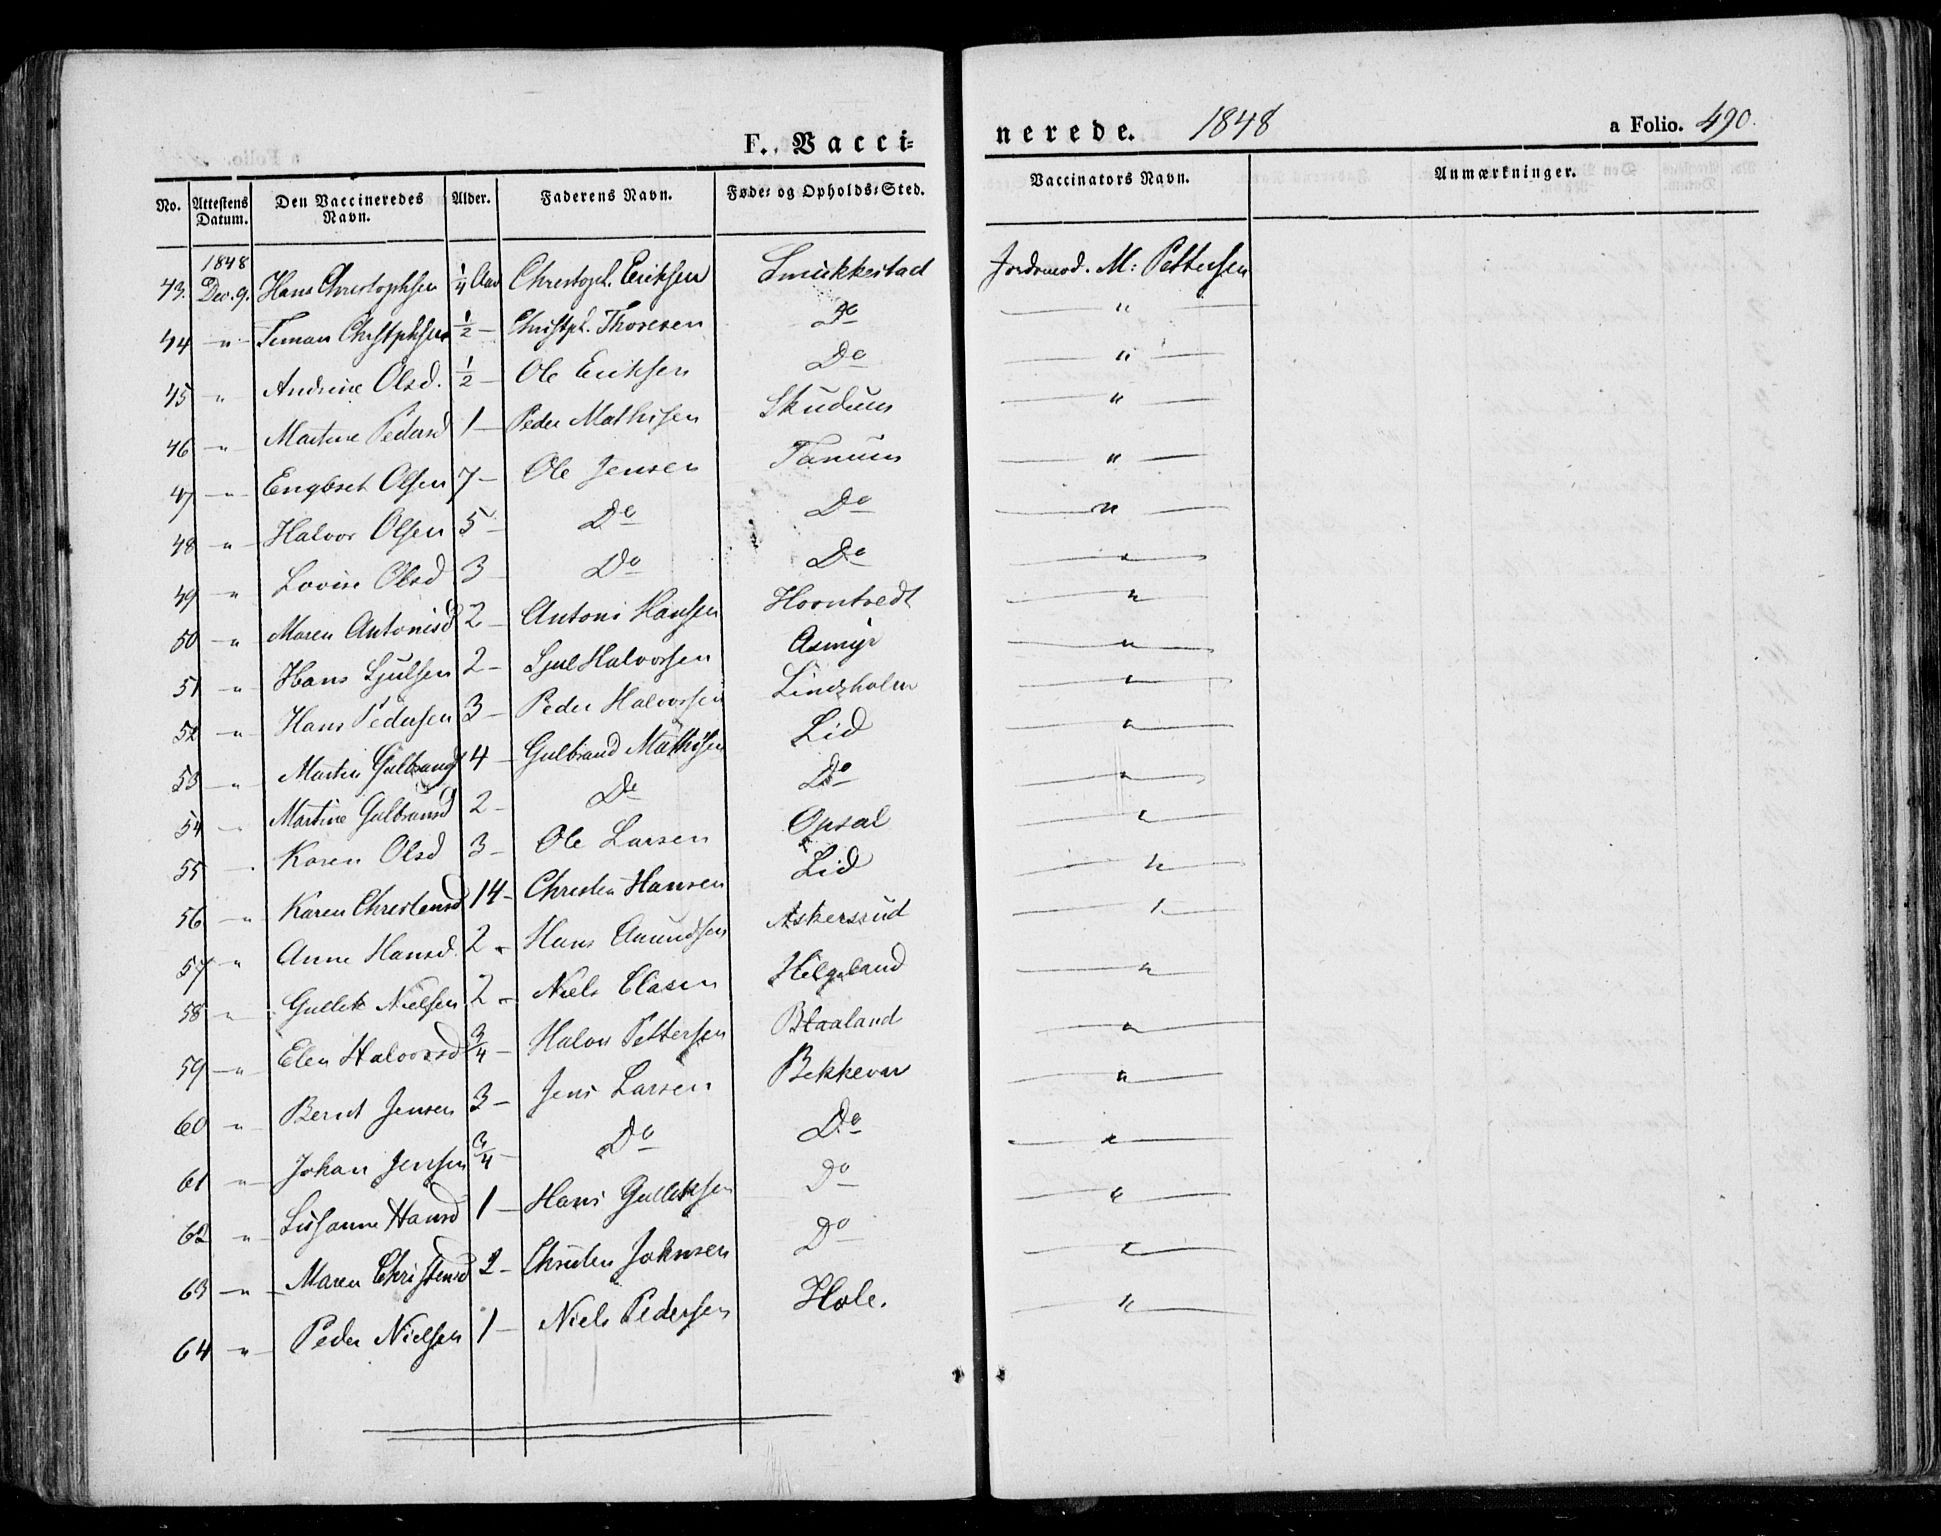 F. Vacci=
nerede. 1848 a Folio. 490.
No. Attestens Datum. Den Vaccineredes Navn. Alder. Faderens Navn. Føde= og Opholds=Sted. Vaccinators Navn. Anmærkninger.
1848
43. Dec. 9. Hans Christophsen 1/4 Aar Christoph. Eriksen Smukkestad Jordmod. M: Pettersen
44 " Timan Christphsen 1/2 — Christph. Thoresen Do "
45 " Andrine Olsd. 1/2 — Ole Eriksen Do "
46 " Martine Pedersd 1 — Peder Mathisen Skuduus "
47 " Engbret Olsen 7 — Ole Jensen Tanum "
48 " Halvor Olsen 5 — Do Do "
49 " Lovise Olsd 3 Do Do "
50 " Maren Antonisd 2 — Antoni Hansen Horntvedt "
51 " Hans Ljulsen 2 — Ljul Halvorsen Asmyr "
52 " Hans Pedersen 3 — Peder Halvorsen Lindsholm "
53 " Martin Gulbrands 4 — Gulbrand Mathisen Lid "
54 " Martine Gulbransd 2 — Do Do "
55 " Karen Olsd 3 — Ole Larsen Opsal "
56 " Karen Christensd 14 — Christen Hansen Lid "
57 " Anne Hansd. 2 — Hans Amundsen Askersrud "
58 " Gullek Nielsen 2 — Niels Clasen Helgeland "
59 " Elen Halvorsd 3/4 — Halvor Pettersen Blaaland "
60 " Bernt Jensen 3 — Jens Larsen Bekkevar "
61 " Johan Jensen 3/4 — Do Do "
62 " Susanne Hansd 1 — Hans Gulleksen Do "
63 " Maren Christensd 2 — Christen Johnsen Do "
64 " Peder Nielsen 1 — Niels Pedersen Hole. "